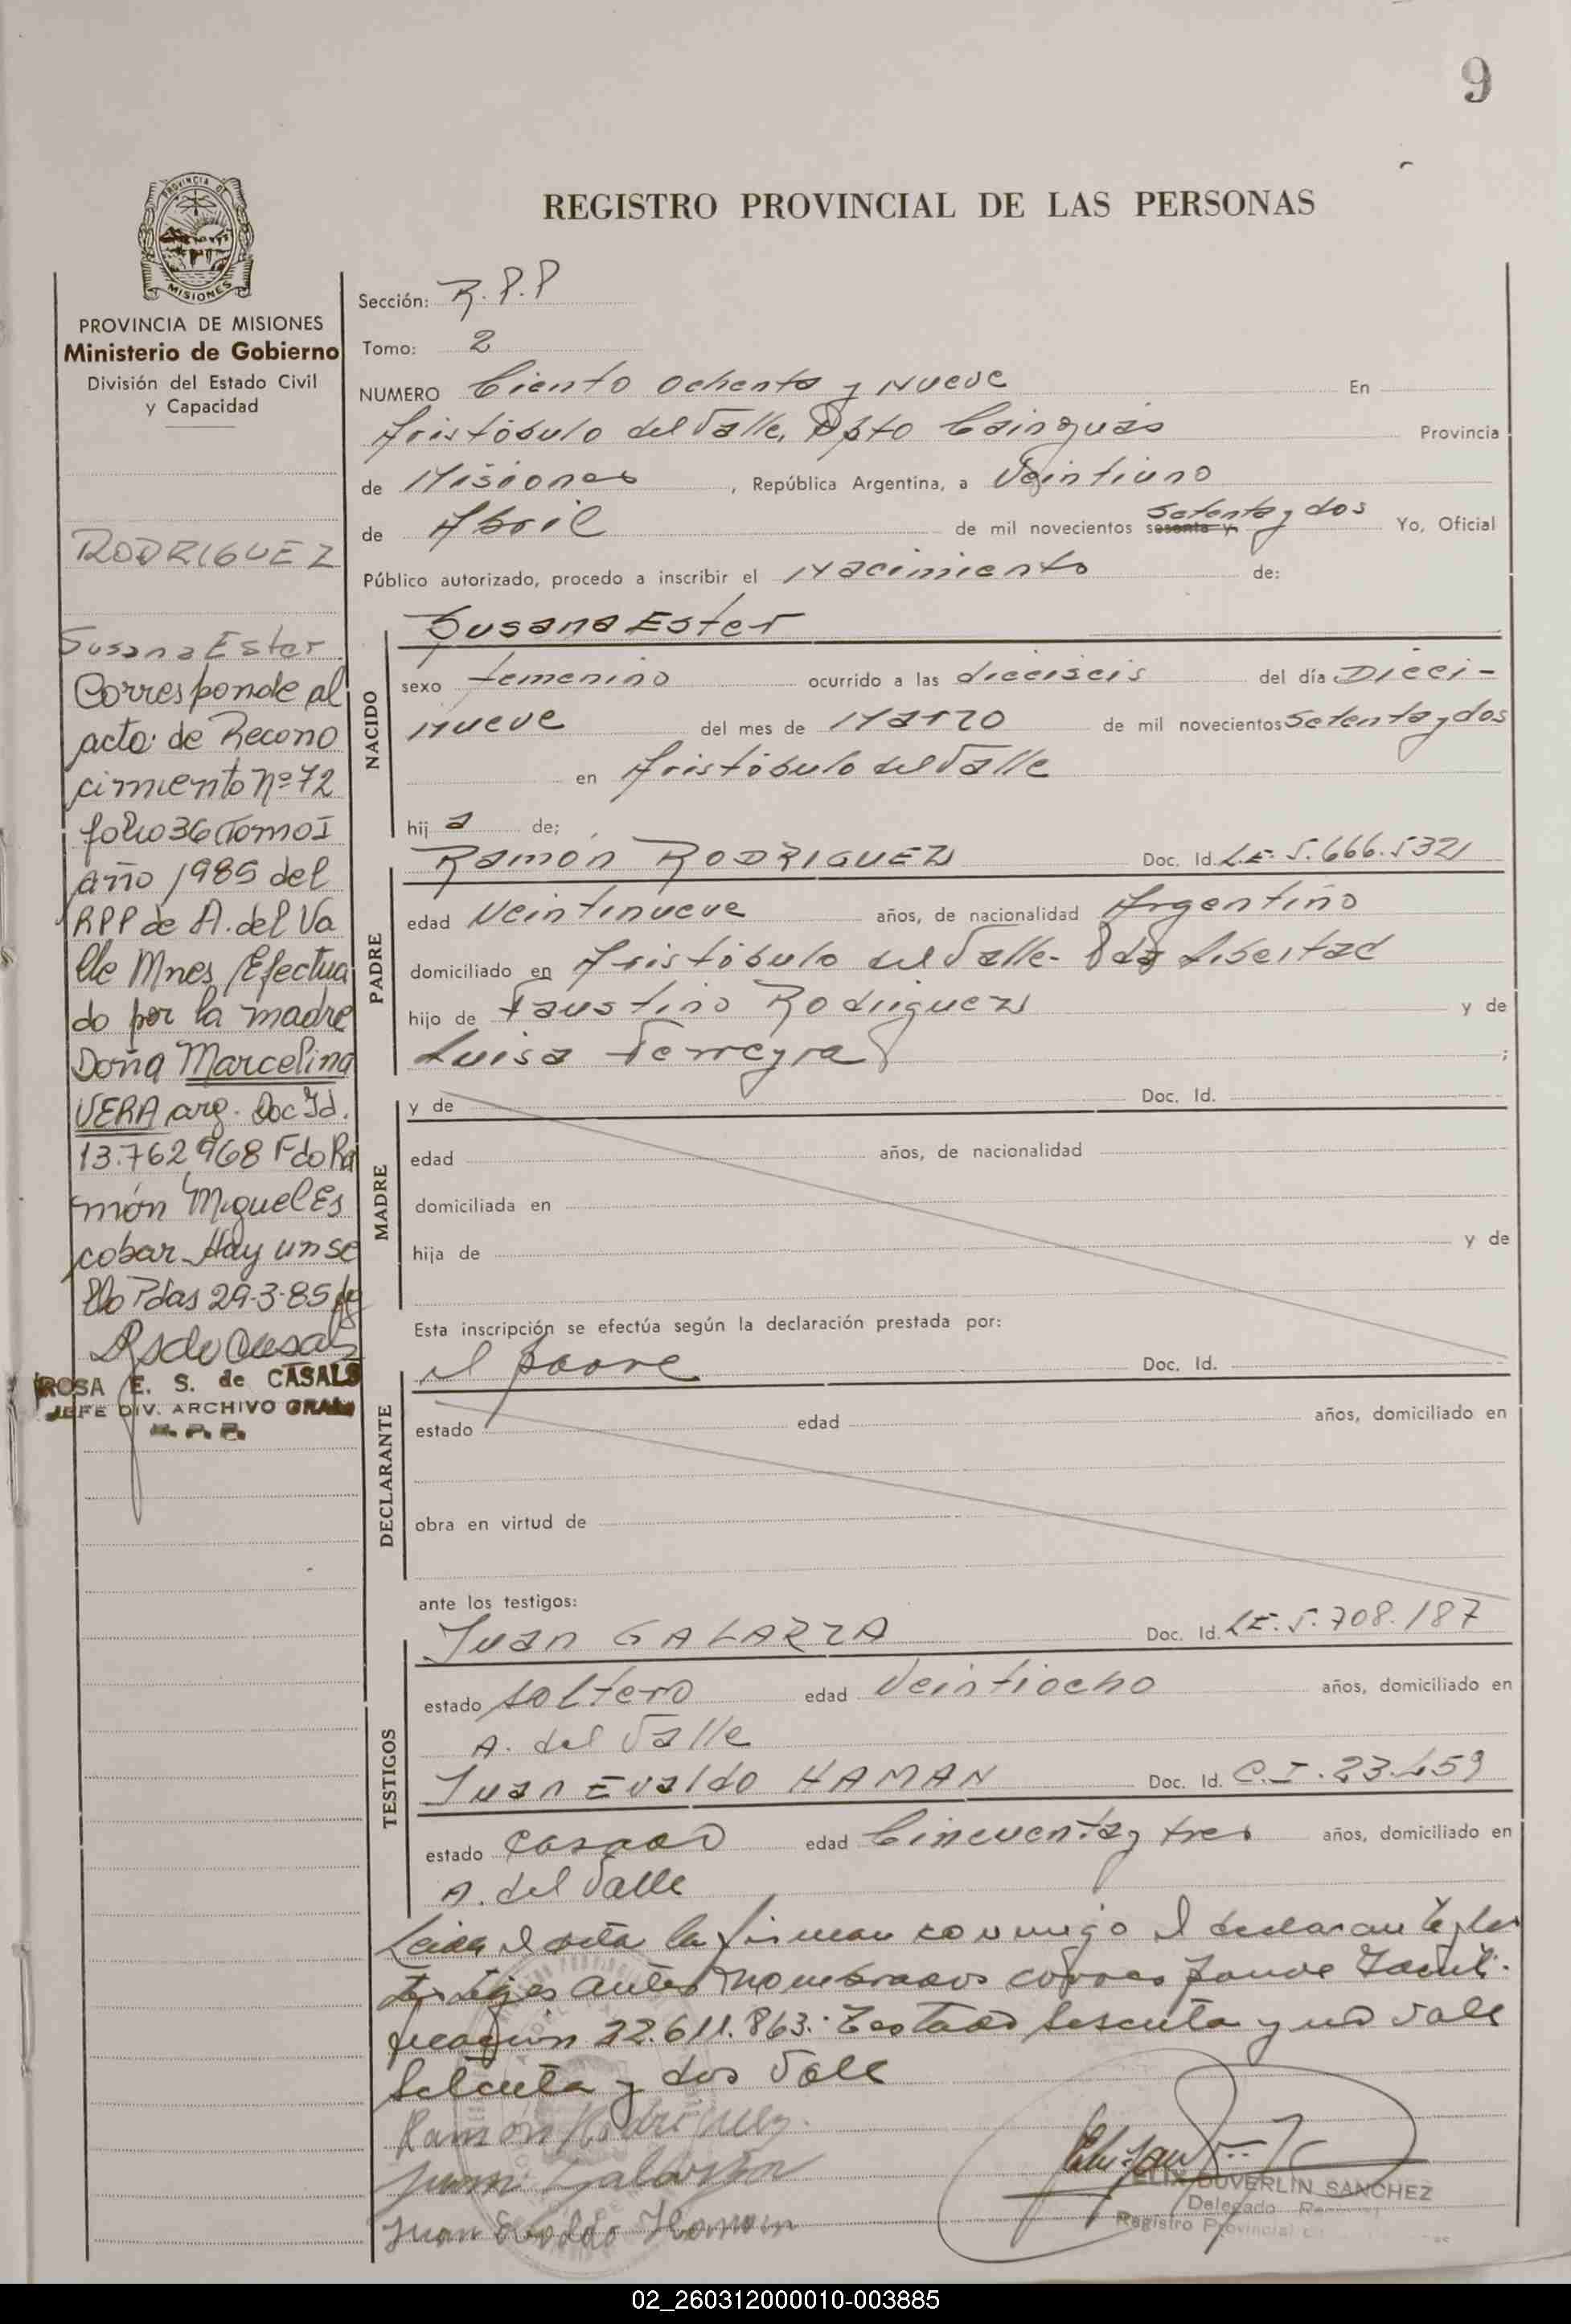 9
PROVINCIA DE
MISIONES
REGISTRO PROVINCIAL DE LAS PERSONAS
PROVINCIA DE MISIONES
Ministerio de Gobierno
División del Estado Civil
y Capacidad
RODRIGUEZ
Susana Ester
Corresponde al
acta de Recono
cimiento Nº 72
folio 36 Tomo I
año 1985 del
RPP de A. del Va
lle Mnes Efectua
do por la madre
Doña Marcelina
VERA arg. Doc Id.
13.762,968 Fdo Ra
món Miguel Es
cobar. Hay un se
llo Pdas 29-3-85
ROSA E. S. de CASALS
JEFE DIV. ARCHIVO GRAL.
R. P. P.
Sección: R.P.P
Tomo: 2
NUMERO Ciento ochenta y Nueve En
Aristóbulo del Valle, Dpto Cainguás Provincia
de Misiones, República Argentina, a Veintiuno
de Abril de mil novecientos sesenta y setenta y dos Yo, Oficial
Público autorizado, procedo a inscribir el Nacimiento de:
NACIDO
Susana Ester
sexo femenino ocurrido a las dieciseis del día Dieci-
nueve del mes de Marzo de mil novecientos setenta y dos
en Aristóbulo del Valle
hij a de;
PADRE
Ramón RODRIGUEZ Doc. Id. L.E. 5.666.532
edad Veintinueve años, de nacionalidad Argentino
domiciliado en Aristóbulo del Valle- Pda Libertad
hijo de Faustino Rodriguez y de
Luisa Ferreyra ;
MADRE
y de Doc. Id.
edad años, de nacionalidad
domiciliada en
hija de y de
Esta inscripción se efectúa según la declaración prestada por:
DECLARANTE
el padre Doc. Id.
estado edad años, domiciliado en
obra en virtud de
ante los testigos:
TESTIGOS
Juan GALARZA Doc. Id. L.E. 5.708.187
estado soltero edad Veintiocho años, domiciliado en
A. del Valle
Juan Evaldo HAMAN Doc. Id. C.I. 23.459
estado casado edad Cincuenta y tres años, domiciliado en
A. del Valle
Leida el acta la firman conmigo el declarante y los
testigos antes nombrados corresponde Identi-
ficación 22.611.863.- Testado sesenta y no vale
setenta y dos vale
Ramón Rodriguez.
Juan Galarza
Juan Evaldo Haman
FELIX DUVERLIN SANCHEZ
Delegado
Registro Provincial
02_260312000010-003885